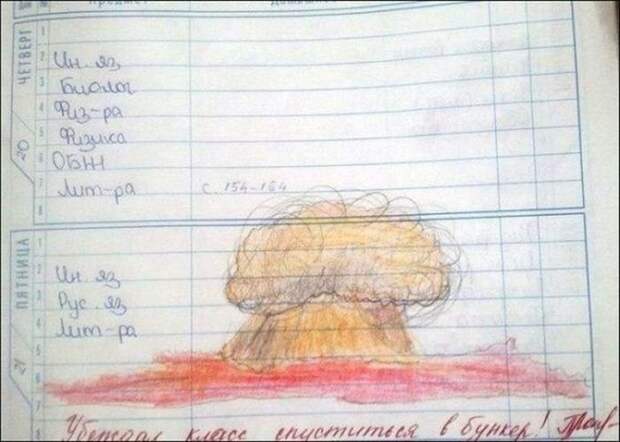 ЧЕТВЕРГ
20
1
2 Ин. яз
3 Биолог
4 Физ-ра
5 Физика
6 ОБЖ
7 Лит-ра с. 154-164
8
ПЯТНИЦА
21
1
2 Ин. яз
3 Рус. яз
4 Лит-ра
5
6
7
8 Убеждал класс спуститься в бункер!